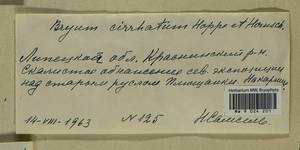 Bryum cirrhatum Hoppe et Hornsch.
Липецкая обл. Краснинский р-н.
Скалистое обнажение сев. экспозиции
над старым руслом Плющанки. На карнизе
Herbarium MW, Bryophyta
MW 9 024 201
14-VIII-1963 N 125